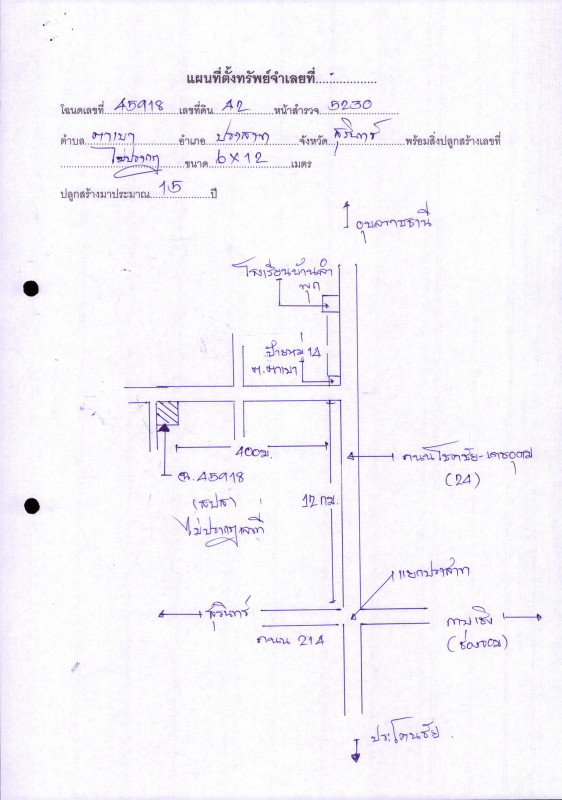 แผนที่ตั้งทรัพย์จำเลยที่....-............
โฉนดเลขที่ 45918 เลขที่ดิน 42 หน้าสำรวจ 5230
ตำบล ตาเบา อำเภอ ปราสาท จังหวัด สุรินทร์ พร้อมสิ่งปลูกสร้างเลขที่
ไม่ปรากฏ ขนาด 6 x 12 เมตร
ปลูกสร้างมาประมาณ 15 ปี
อุบลราชธานี
โรงเรียนบ้านลำ
พุก
ป้ายหมู่ 14
ต.ตาเบา
400ม.
ถนนโชคชัย-เดชอุดม
(24)
ฉ.45918
(สปส)
ไม่ปรากฏเลขที่
12 กม.
แยกปราสาท
สุรินทร์
ถนน 214
กาบเชิง
(ช่องจอม)
ประโคนชัย